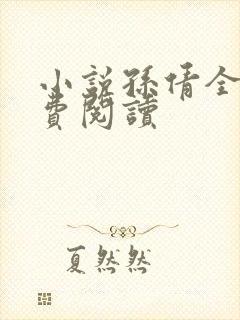 小說孫倩全
費閱讀
夏然然